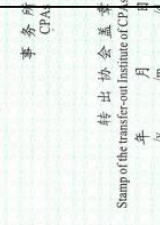 事务所
CPAs
转出协会盖章
Stamp of the transfer-out Institute of CPAs
年 月 日
/y /m